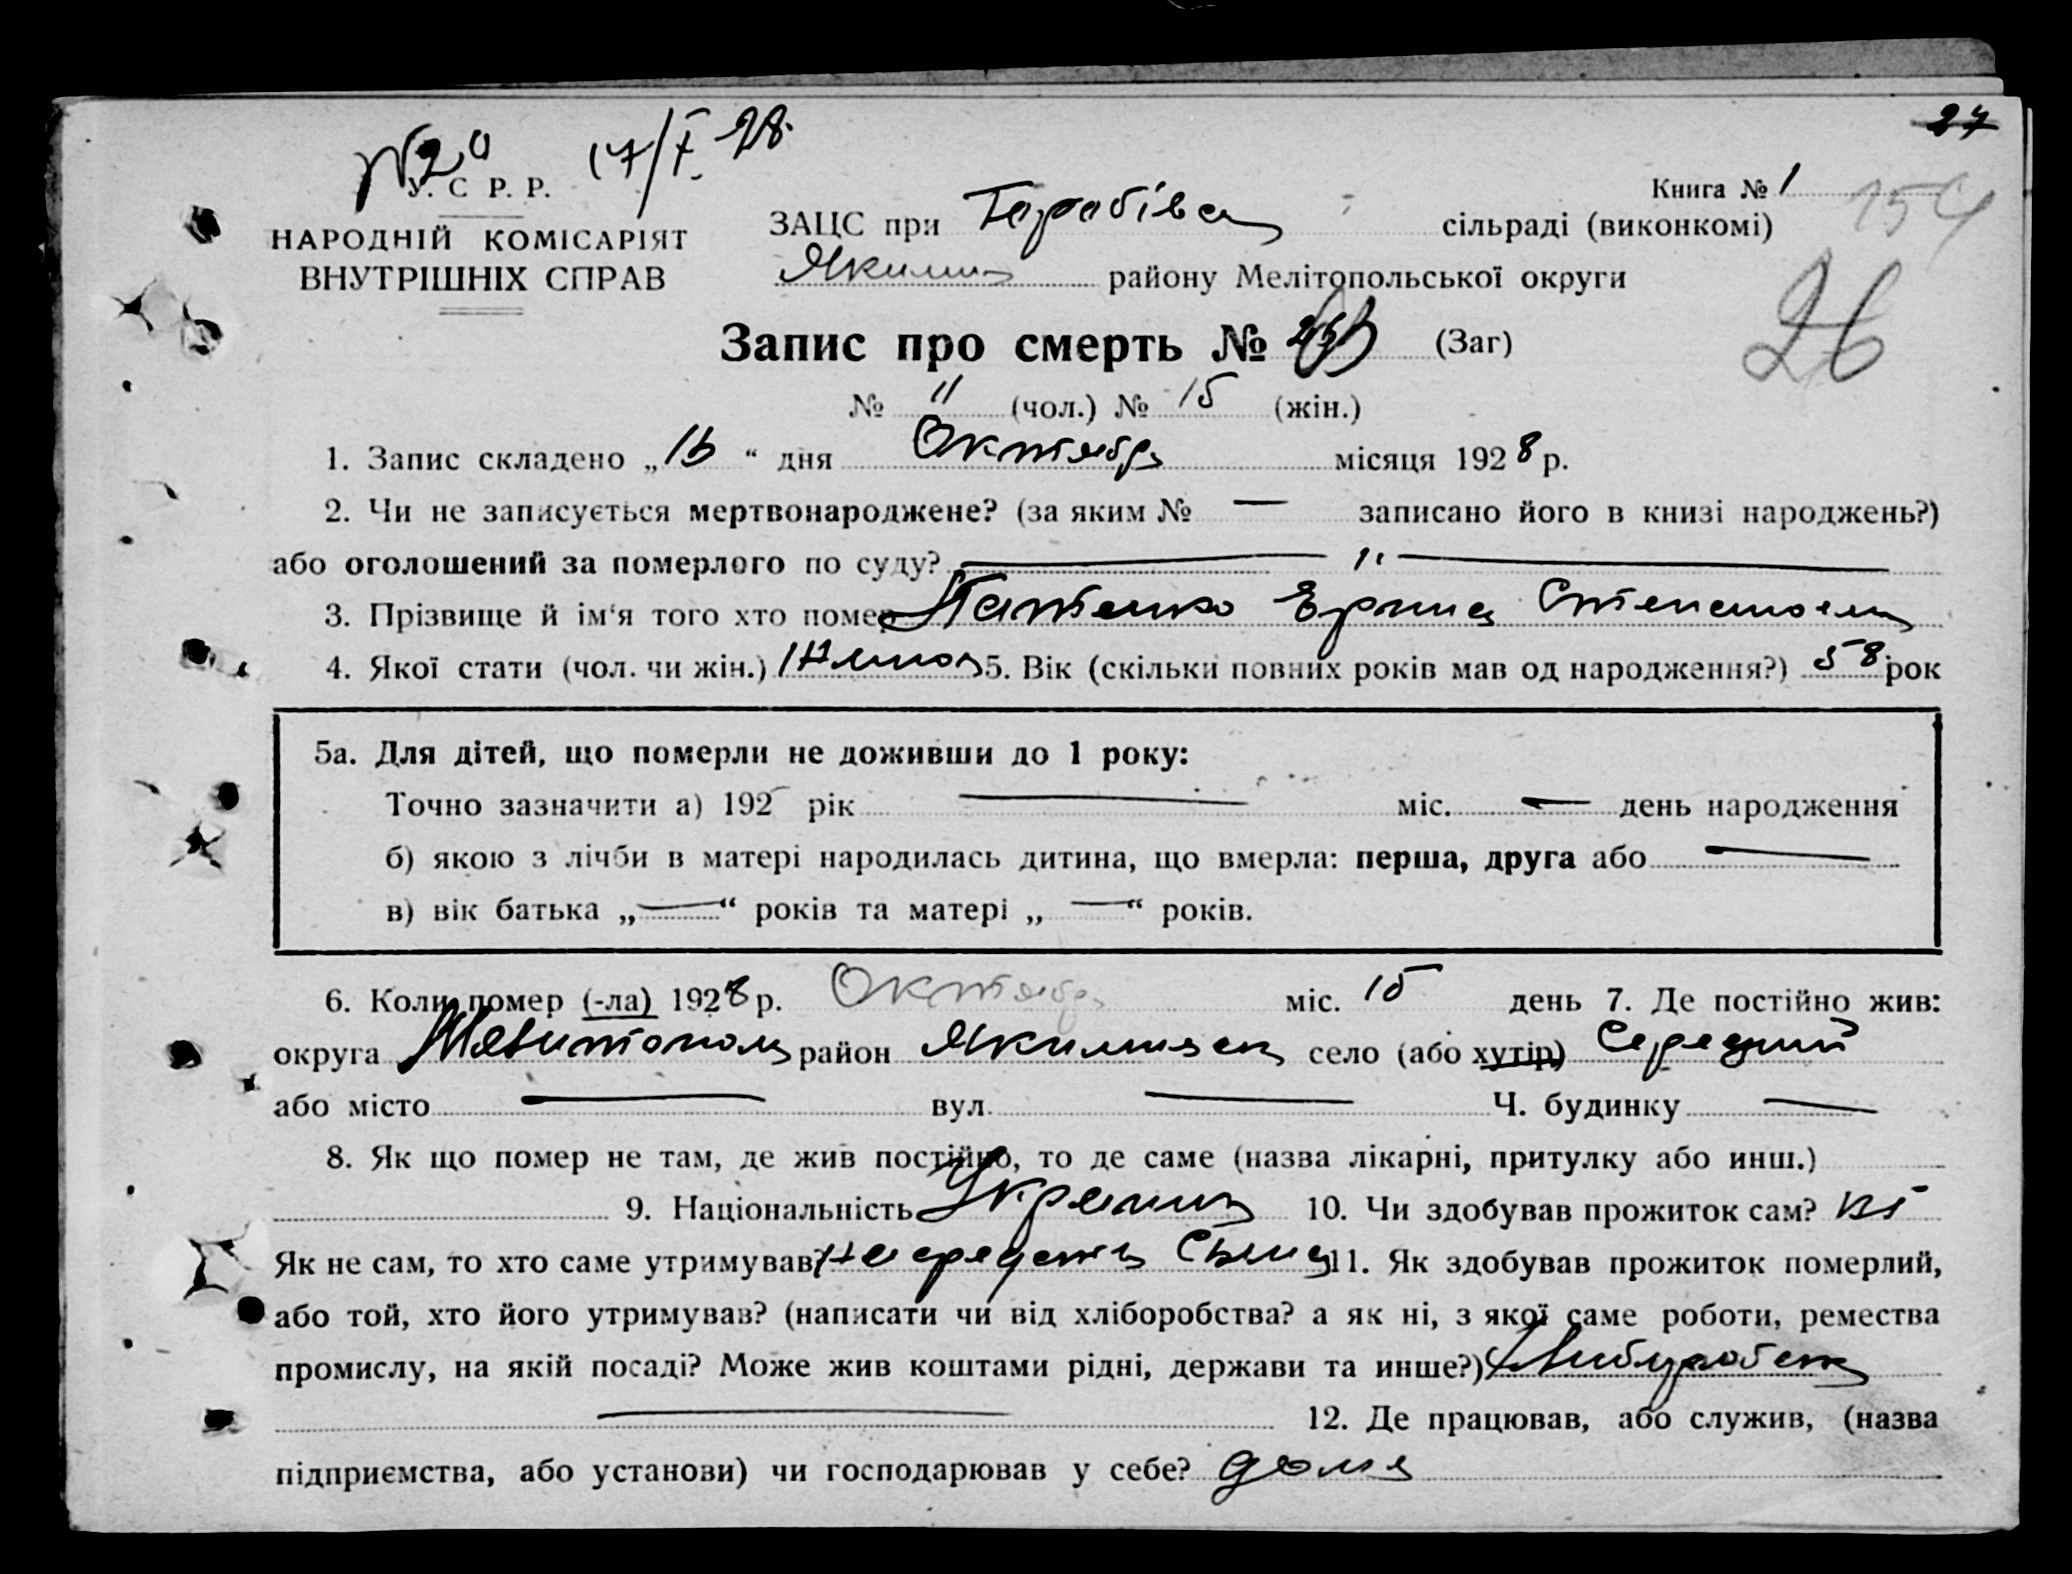 27
17/X 28.
У. С Р. Р.
Книга № 1
154
НАРОДНІЙ КОМІСАРІЯТ
ВНУТРІШНІХ СПРАВ
ЗАЦС при сільраді (виконкомі)
Якимів району Мелітопольської округи
26
Запис про смерть № (Заг)
№ 11 (чол.) № 15 (жін.)
1. Запис складено „ “ дня Октября місяця 1928 р.
2. Чи не записується мертвонароджене? (за яким № — записано його в книзі народжень?)
або оголошений за померлого по суду? — " —
3. Прізвище й ім‘я того хто помер Степановна
4. Якої стати (чол. чи жін.) 5. Вік (скільки повних років мав од народження?) 58 рок
5а. Для дітей, що померли не доживши до 1 року:
Точно зазначити а) 192 рік — міс. — день народження
б) якою з лічби в матері народилась дитина, що вмерла: перша, друга або —
в) вік батька „—“ років та матері „—“ років.
6. Коли помер (-ла) 1928 р. Октября міс. 15 день 7. Де постійно жив:
округа Мелитополь район село (або хутір)
або місто — вул. — Ч. будинку —
8. Як що помер не там, де жив постійно, то де саме (назва лікарні, притулку або инш.)
9. Національність 10. Чи здобував прожиток сам? ні
Як не сам, то хто саме утримував? на средства сына 11. Як здобував прожиток померлий,
або той, хто його утримував? (написати чи від хліборобства? а як ні, з якої саме роботи, ремества
промислу, на якій посаді? Може жив коштами рідні, держави та инше?)
— 12. Де працював, або служив, (назва
підприємства, або установи) чи господарював у себе? дома